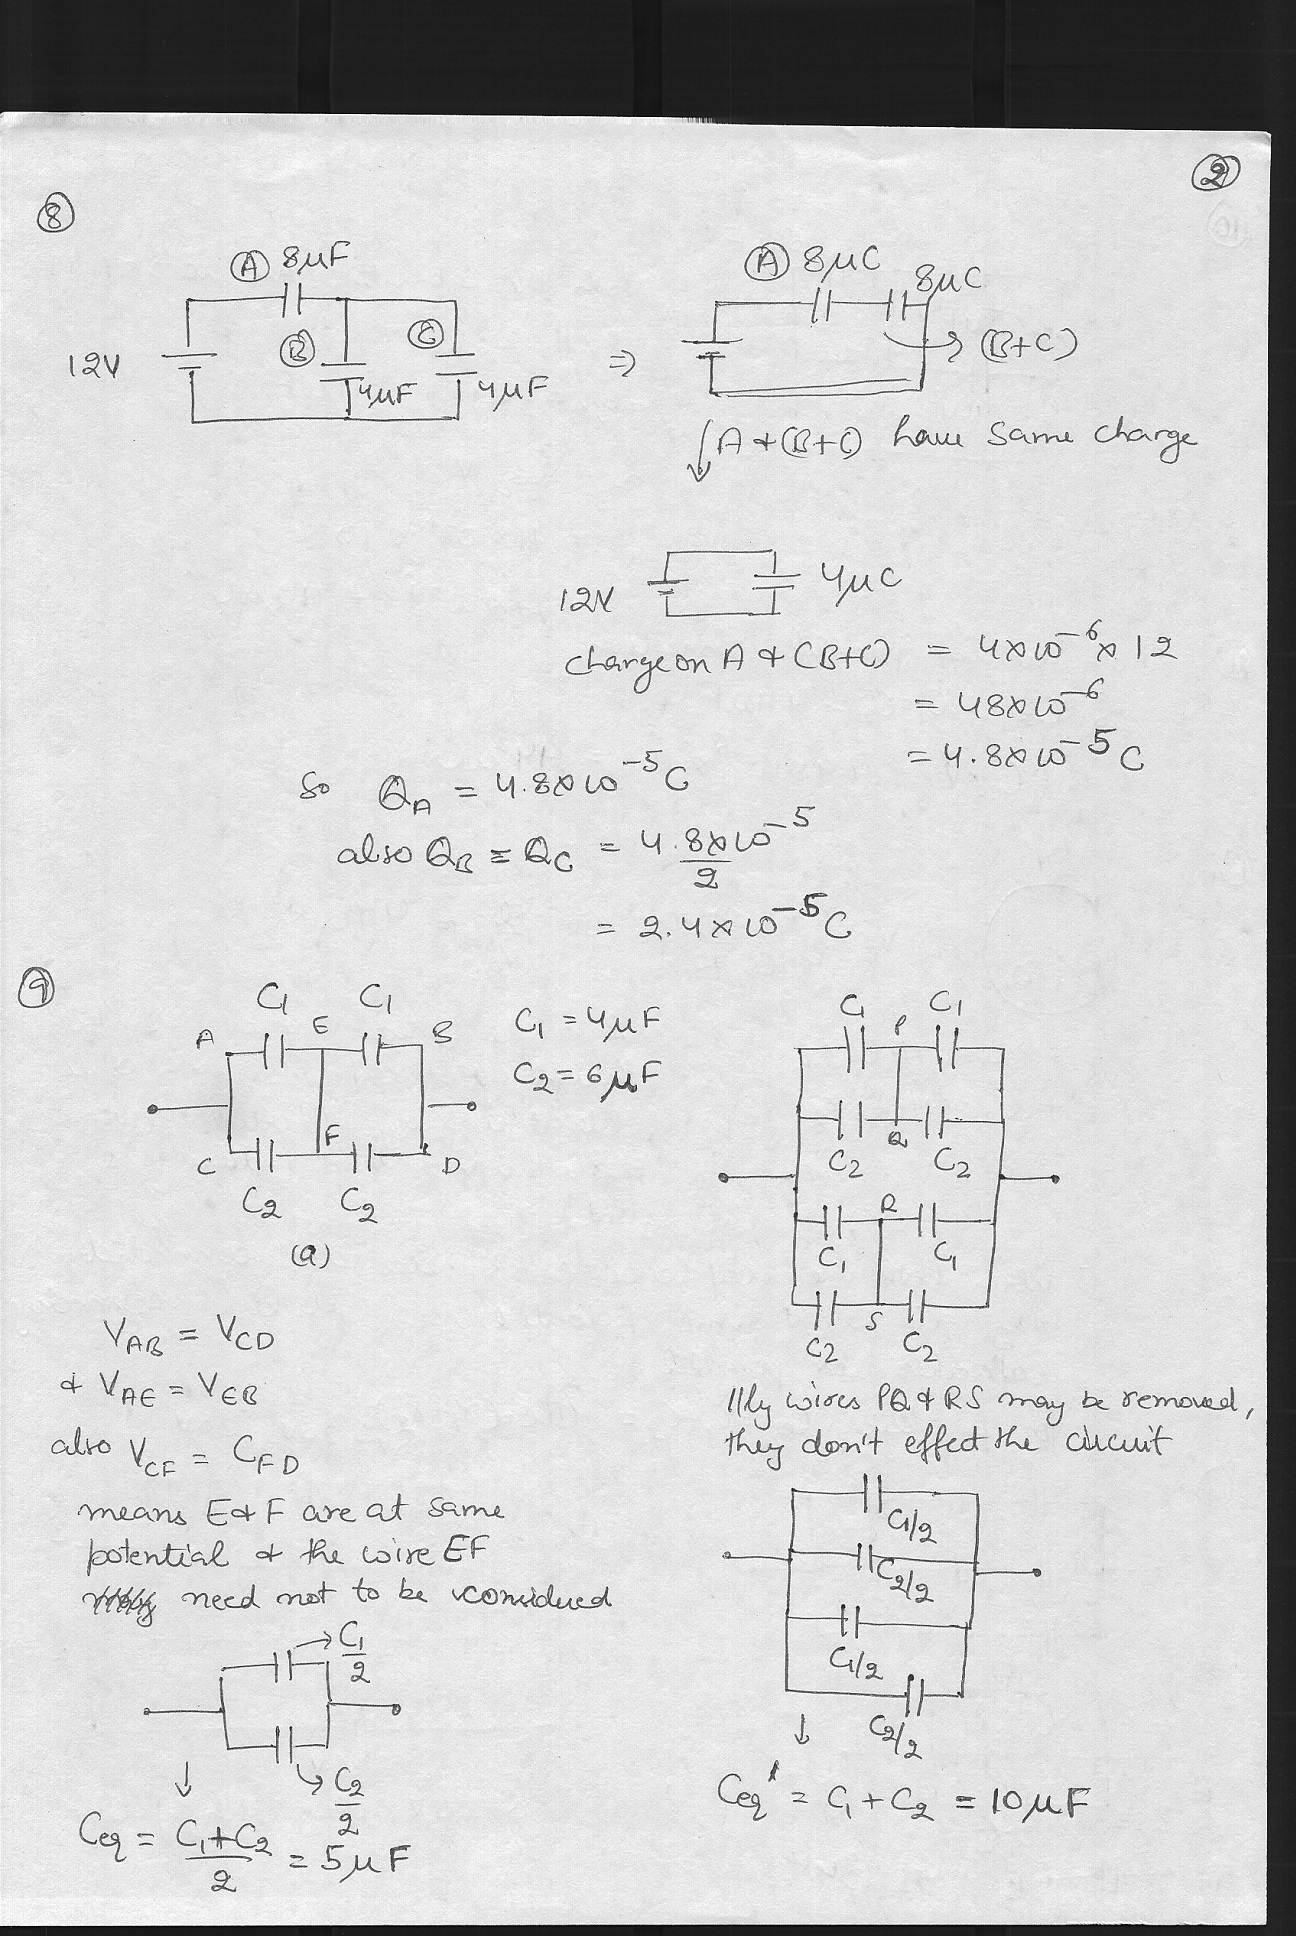 ②
⑧
Ⓐ 8μF
Ⓑ
Ⓒ
12V
4μF
4μF
⇒
Ⓐ 8μC
8μC
→ (B+C)
↓ A & (B+C) have same charge
12V
4μC
charge on A & (B+C) = 4×10⁻⁶×12
= 48×10⁻⁶
= 4.8×10⁻⁵ C
So Q_A = 4.8×10⁻⁵ C
also Q_B = Q_C = 4.8×10⁻⁵/2
= 2.4×10⁻⁵ C
⑨
C₁ C₁
A E B
C F D
C₂ C₂
(a)
C₁ = 4μF
C₂ = 6μF
V_AB = V_CD
& V_AE = V_EB
also V_CF = C_FD
means E & F are at same
potential & the wire EF
need not to be considered
→ C₁/2
↳ C₂/2
↓
Ceq = (C₁+C₂)/2 = 5μF
C₁ P C₁
Q
C₂ C₂
R
C₁ C₁
S
C₂ C₂
llly wires PQ & RS may be removed,
they don't effect the circuit
C₁/2
C₂/2
C₁/2
C₂/2
↓
Ceq' = C₁ + C₂ = 10μF